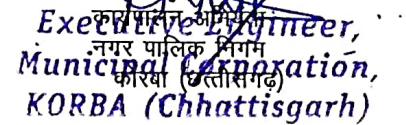 कार्यपालन अभियंता
Executive Engineer,
नगर पालिक निगम
Municipal Corporation,
कोरबा (छत्तीसगढ़)
KORBA (Chhattisgarh)